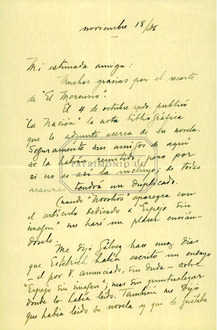 noviembre 18/36
Mi estimada amiga:
Muchas gracias por el recorte
de "El Mercurio".
El 4 de octubre ppdo. publicó
"La Nación" la nota bibliográfica
que le adjunto acerca de su novela.
Seguramente sus amigos de aquí
se la habrán remitido, pero por
si no es así la incluyo; de todas
maneras tendrá un duplicado.
PATRIMONIO UA
Cuando "Nosotros" aparezca con
el artículo dedicado a "Espejo sin
imagen" me hará un placer envián-
doselo.
Me dijo Gálvez hace unos días
que había escrito un ensayo
el por V. anunciado, sin duda - sobre
"Espejo sin imagen", mas sin puntualizar
donde lo había leído. También me dijo
que había leído su novela y que le gustaba